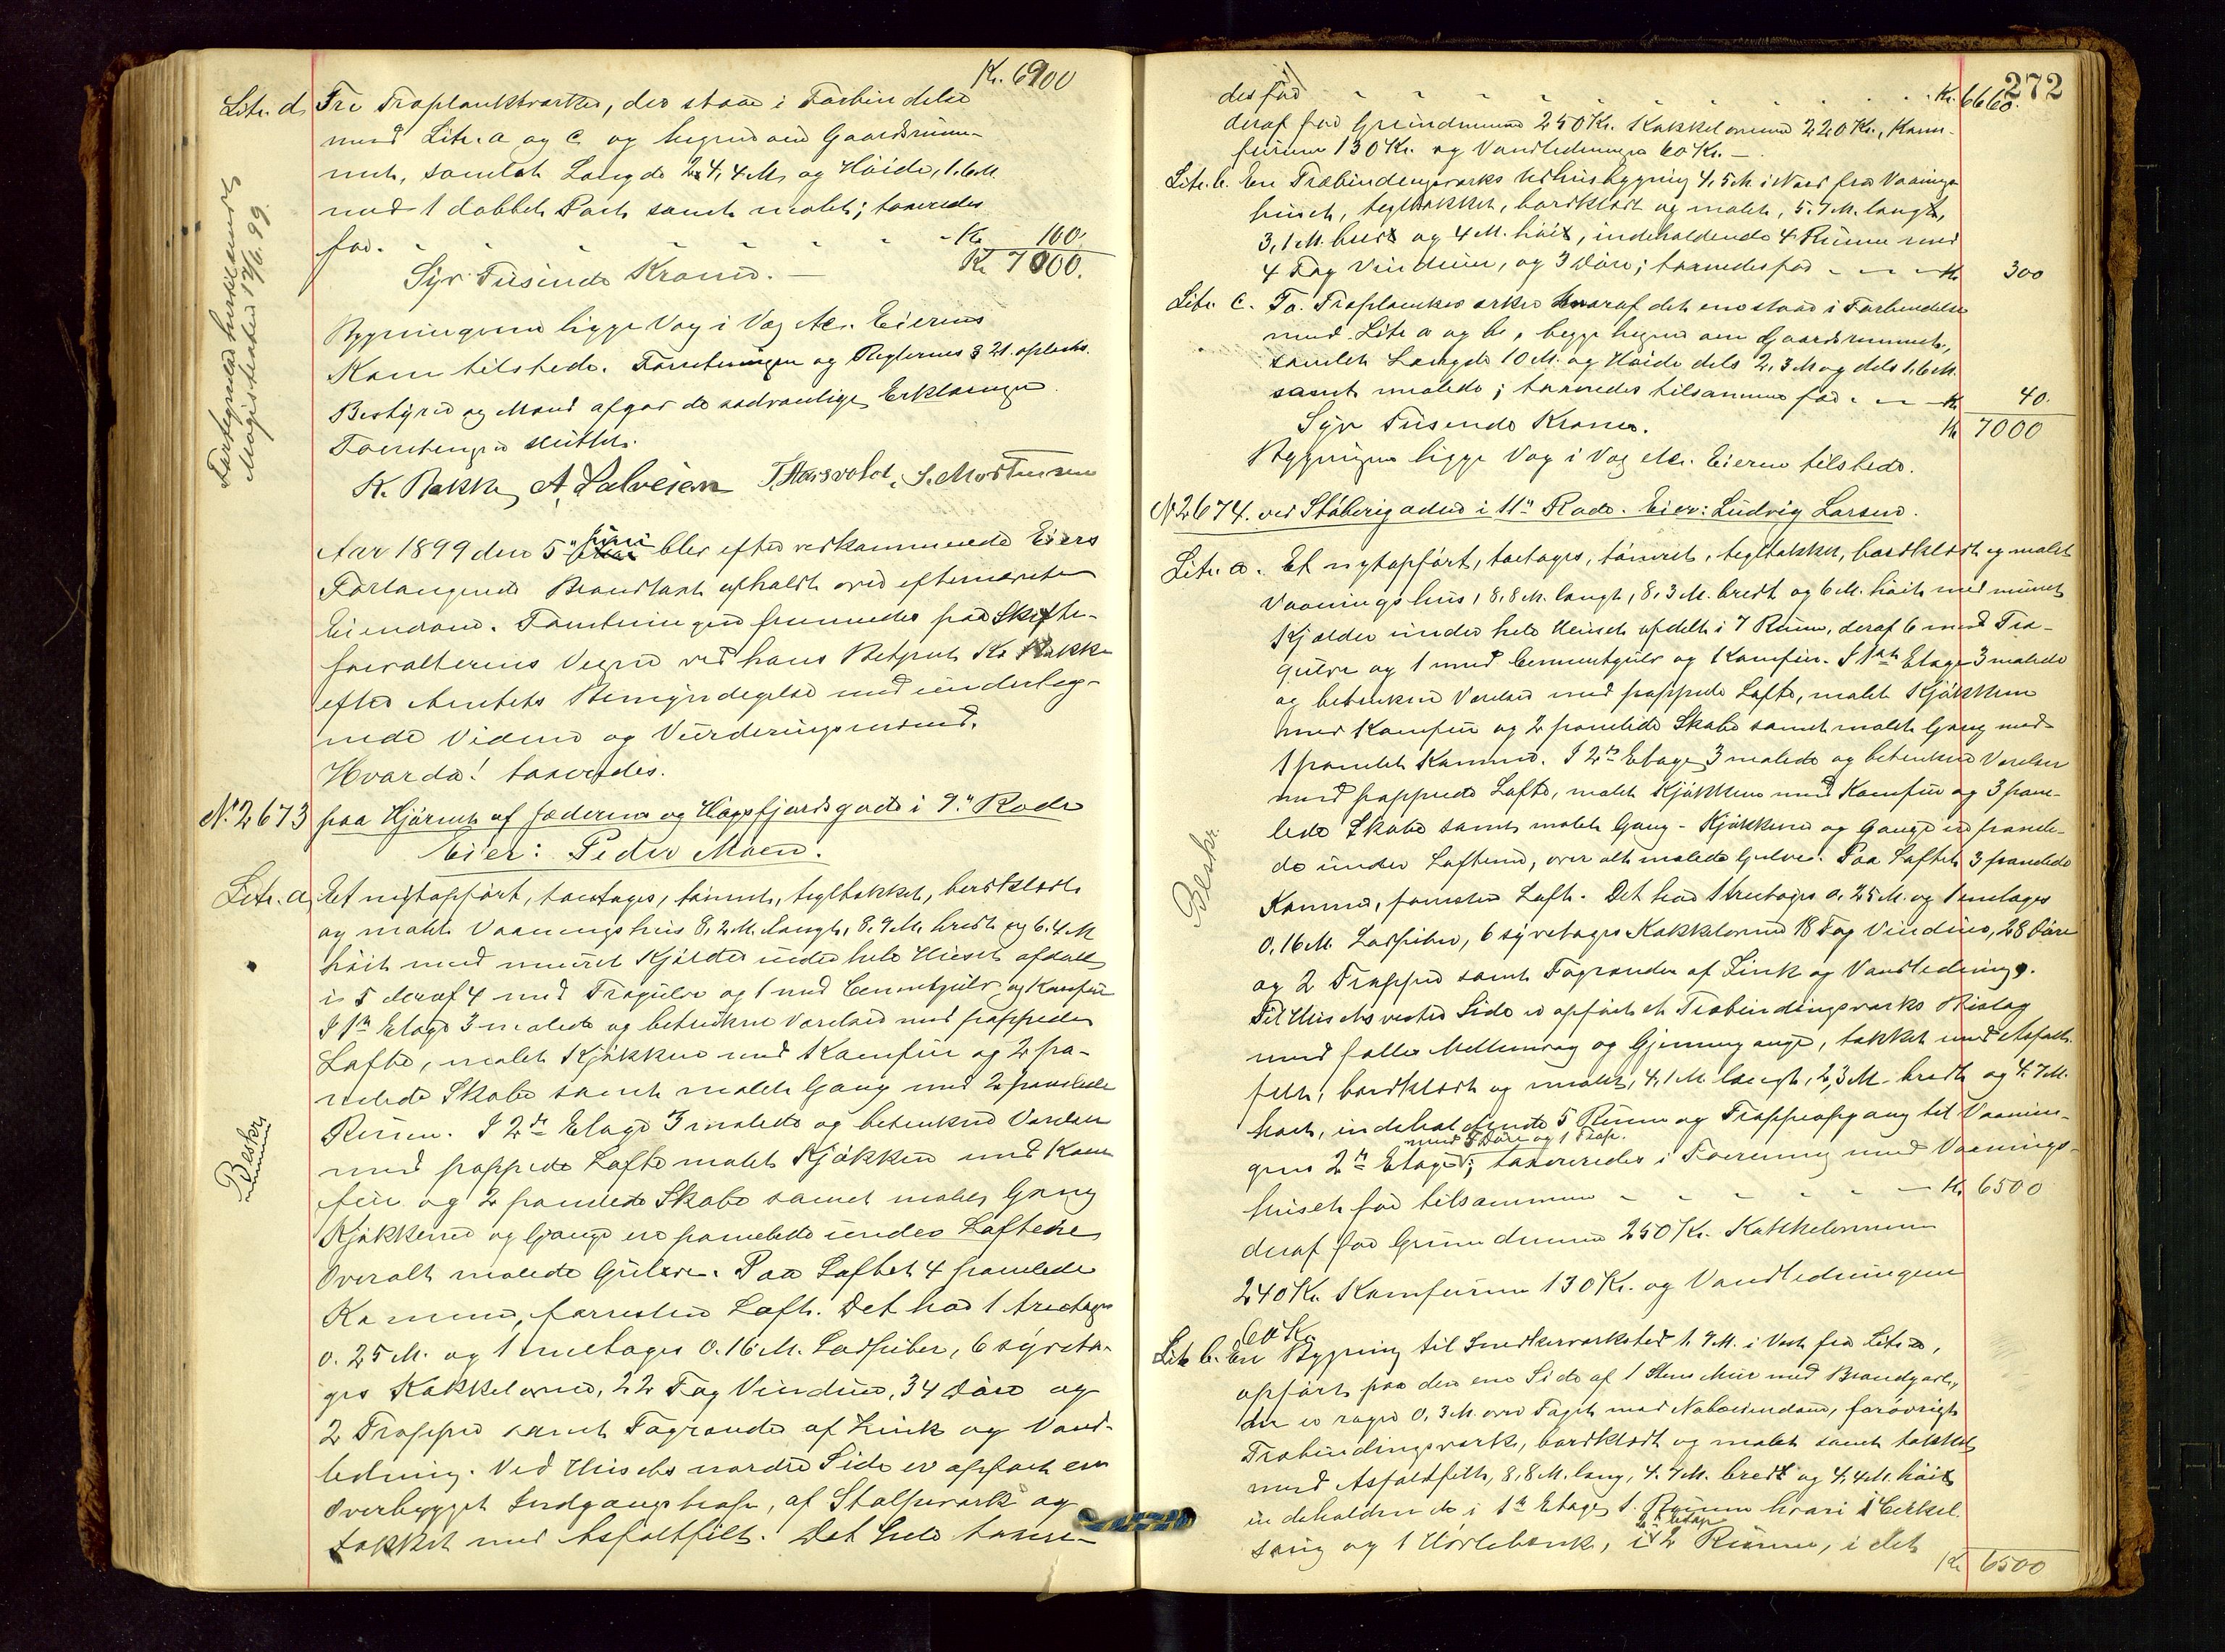 Kr. 6900
Litr. d. Tre Træplankværker, der staar i Forbindelse
med Litr. a og c og hegner om Gaardsrum-
met, samlet Længde 24,4 M. og Høide 1.6 M.
med 1 dobbelt Port samt malet; taxeredes
for. - - - - - - Kr. 100.
Syv Tusinde Kroner. — Kr. 7000.
Bygningerne ligge Væg i Væg etc. Eierens
Kone tilstede. Forretningen og Reglernes § 21. oplæst.
Bestyrer og Mænd afgav de sædvanlige Erklæringer
Forretningen sluttet.
K. Bakke A. Salvesen T. Haisvoldt, S. Mortensen
Fortegnelse indsendt
Magistraten 12/6. 99.
Aar 1899 den 5te Juni blev efter vedkommende Eiers
Forlangende Brandtaxt afholdt over efternævnte
Eiendomme. Forretningen fremmedes paa Skifte-
forvalterens Vegne ved hans Betjent K. Bakke
efter Amtets Bemyndigelse med underteg-
nede Vidner og Vurderingsmænd.
Hvorda! taxeredes.
No. 2673 paa Hjørnet af Jæderen og Høgsfjordsgade i 9de Rode
Eier: Peder Moen.
Litr. a. Et nytopført, toetages, tømret, tegltækket, bordklædt
og malet Vaaningshus 8,2 M. langt, 8,9 M. bredt og 6.4 M
høit med muret Kjælder under hele Huset afdelt
i 5 deraf 4 med Trægulve og 1 med Cementgulv og Komfur
I 1ste Etage 3 malede og betrukne Værelser med pappede
Lofte, malet Kjøkken med Komfur og 2 pa-
nelede Skabe samt malet Gang med 2 panelede
Rum. I 2den Etage 3 malede og betrukne Værelser
med pappede Lofte malet Kjøkken med Kom-
fur og 2 panelede Skabe samt malet Gang
Kjøkkenet og Gange er panelede under Loftene
Overalt malede Gulve. Paa Loftet 4 panelede
Kamme, forresten Loft. Det har 1 treetages
0.25 M. og 1 enetages 0.16 M. Ladpiber, 6 syveta-
ges Kakkelovne, 22 Fag Vinduer, 34 Døre og
2 Trapper samt Tagrender af Zink og Vand-
ledning. Ved Husets nordre Side er opført en
Overbygget Indgangstrappe, af Stolpeværk og
tækket med Asfaltfilt. Det hele taxere-
Beskr.
272
des for - - - - - - - - Kr. 6660.
deraf for Grundmuren 250 Kr. Kakkelovnene 220 Kr., Kom-
furene 130 Kr. og Vandledningen 60 Kr. —
Litr. b. En Træbindingsværks Udhusbygning 4,5 M. i Nord fra Vaanings-
huset, tegltækket, bordklædt og malet, 5.7 M. langt,
3,1 M. bredt og 4 M. høit, indeholdende 4 Rumme med
4 Fag Vinduer, og 3 Døre; taxeredes for - - - Kr 300
Litr. c. To Træplankeværker hvoraf det ene staar i Forbindelse
med Litr a og b, begge hegner om Gaardsrummet,
samlet Længde 10 M. og Høide dels 2,3 M og dels 1.6 M.
samt malede; taxeredes tilsammen for - - - Kr 40.
Syv Tusinde Kroner. Kr 7000
Bygningerne ligge Væg i Væg etc. Eieren tilstede.
No 2674. ved Støberigaden i 11te Rode. Eier: Ludvig Larsen.
Litr. a. Et nytopført, toetages, tømret, tegltækket, bordklædt og malet
Vaaningshus, 8,8 M. langt, 8,3 M. bredt og 6 M. høit med muret
Kjælder under hele Huset afdelt i 7 Rum, deraf 6 med Træ-
gulve og 1 med Cementgulv og Komfur. I 1ste Etage 3 malede
og betrukne Værelser med pappede Lofte, malet Kjøkken
med Komfur og 2 panelede Skabe samt malet Gang med
1 panelet Kammer. I 2den Etage 3 malede og betrukne Værelser
med pappede Lofte, malet Kjøkken med Komfur og 3 pane-
lede Skabe samt malet Gang - Kjøkkene og Gange er panele-
de under Loftene, over alt malede Gulve. Paa Loftet 3 panelede
Kamme, forresten Loft. Det har 1 treetages 0,25 M. og 1 enetages
0,16 M. Ladpiber, 6 syvetages Kakkelovne 18 Fag Vinduer, 28 Døre
og 2 Trapper samt Tagrender af Zink og Vandledning.
Til Husets vestre Side er opført et Træbindingsværks Bislag
med fælles Mellemvæg og Gjennemgange, tækket med Asfalt-
filt, bordklædt og malet, 4,1 M. langt, 2,3 M. bredt og 4.7 M.
høit, indeholdende 5 Rumme og Trappeopgang til Vaanin-
gens 2den Etage; med 5 Døre og 1 Trap. taxeredes i Forening med Vaanings-
huset for tilsammen - - - - - - Kr 6500
deraf for Grundmuren 250 Kr. Kakkelovnene
240 Kr. Komfurene 130 Kr. og Vandledningen
60 Kr.
Litr b. En Bygning til Snedkerværksted 1.9 M. i Vest fra Litr a,
opført paa den ene Side af 1 Stens Mur med Brandgavl,
der er rager 0,3 M. over Taget mod Naboeiendom, forøvrigt
Træbindingsværk, bordklædt og malet samt tækket
med Asfaltfilt, 8,8 M. lang, 4.7 M. bredt og 4,4 M. høit
indeholdende i 1ste Etage 1 Rumme hvori 1 Cirkel-
sag og 1 Høvlebænk, i 2den Etage 2 Rumme, i det
Kr 6500
Beskr.